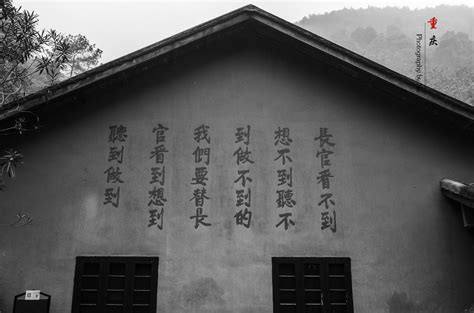 長官看不到
想不到聽不
到做不到的
我們要替長
官看到想到
聽到做到
重庆
Photography by